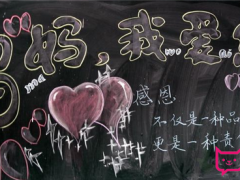 妈,我爱
ma
感恩
不仅是一种品
更是一种责